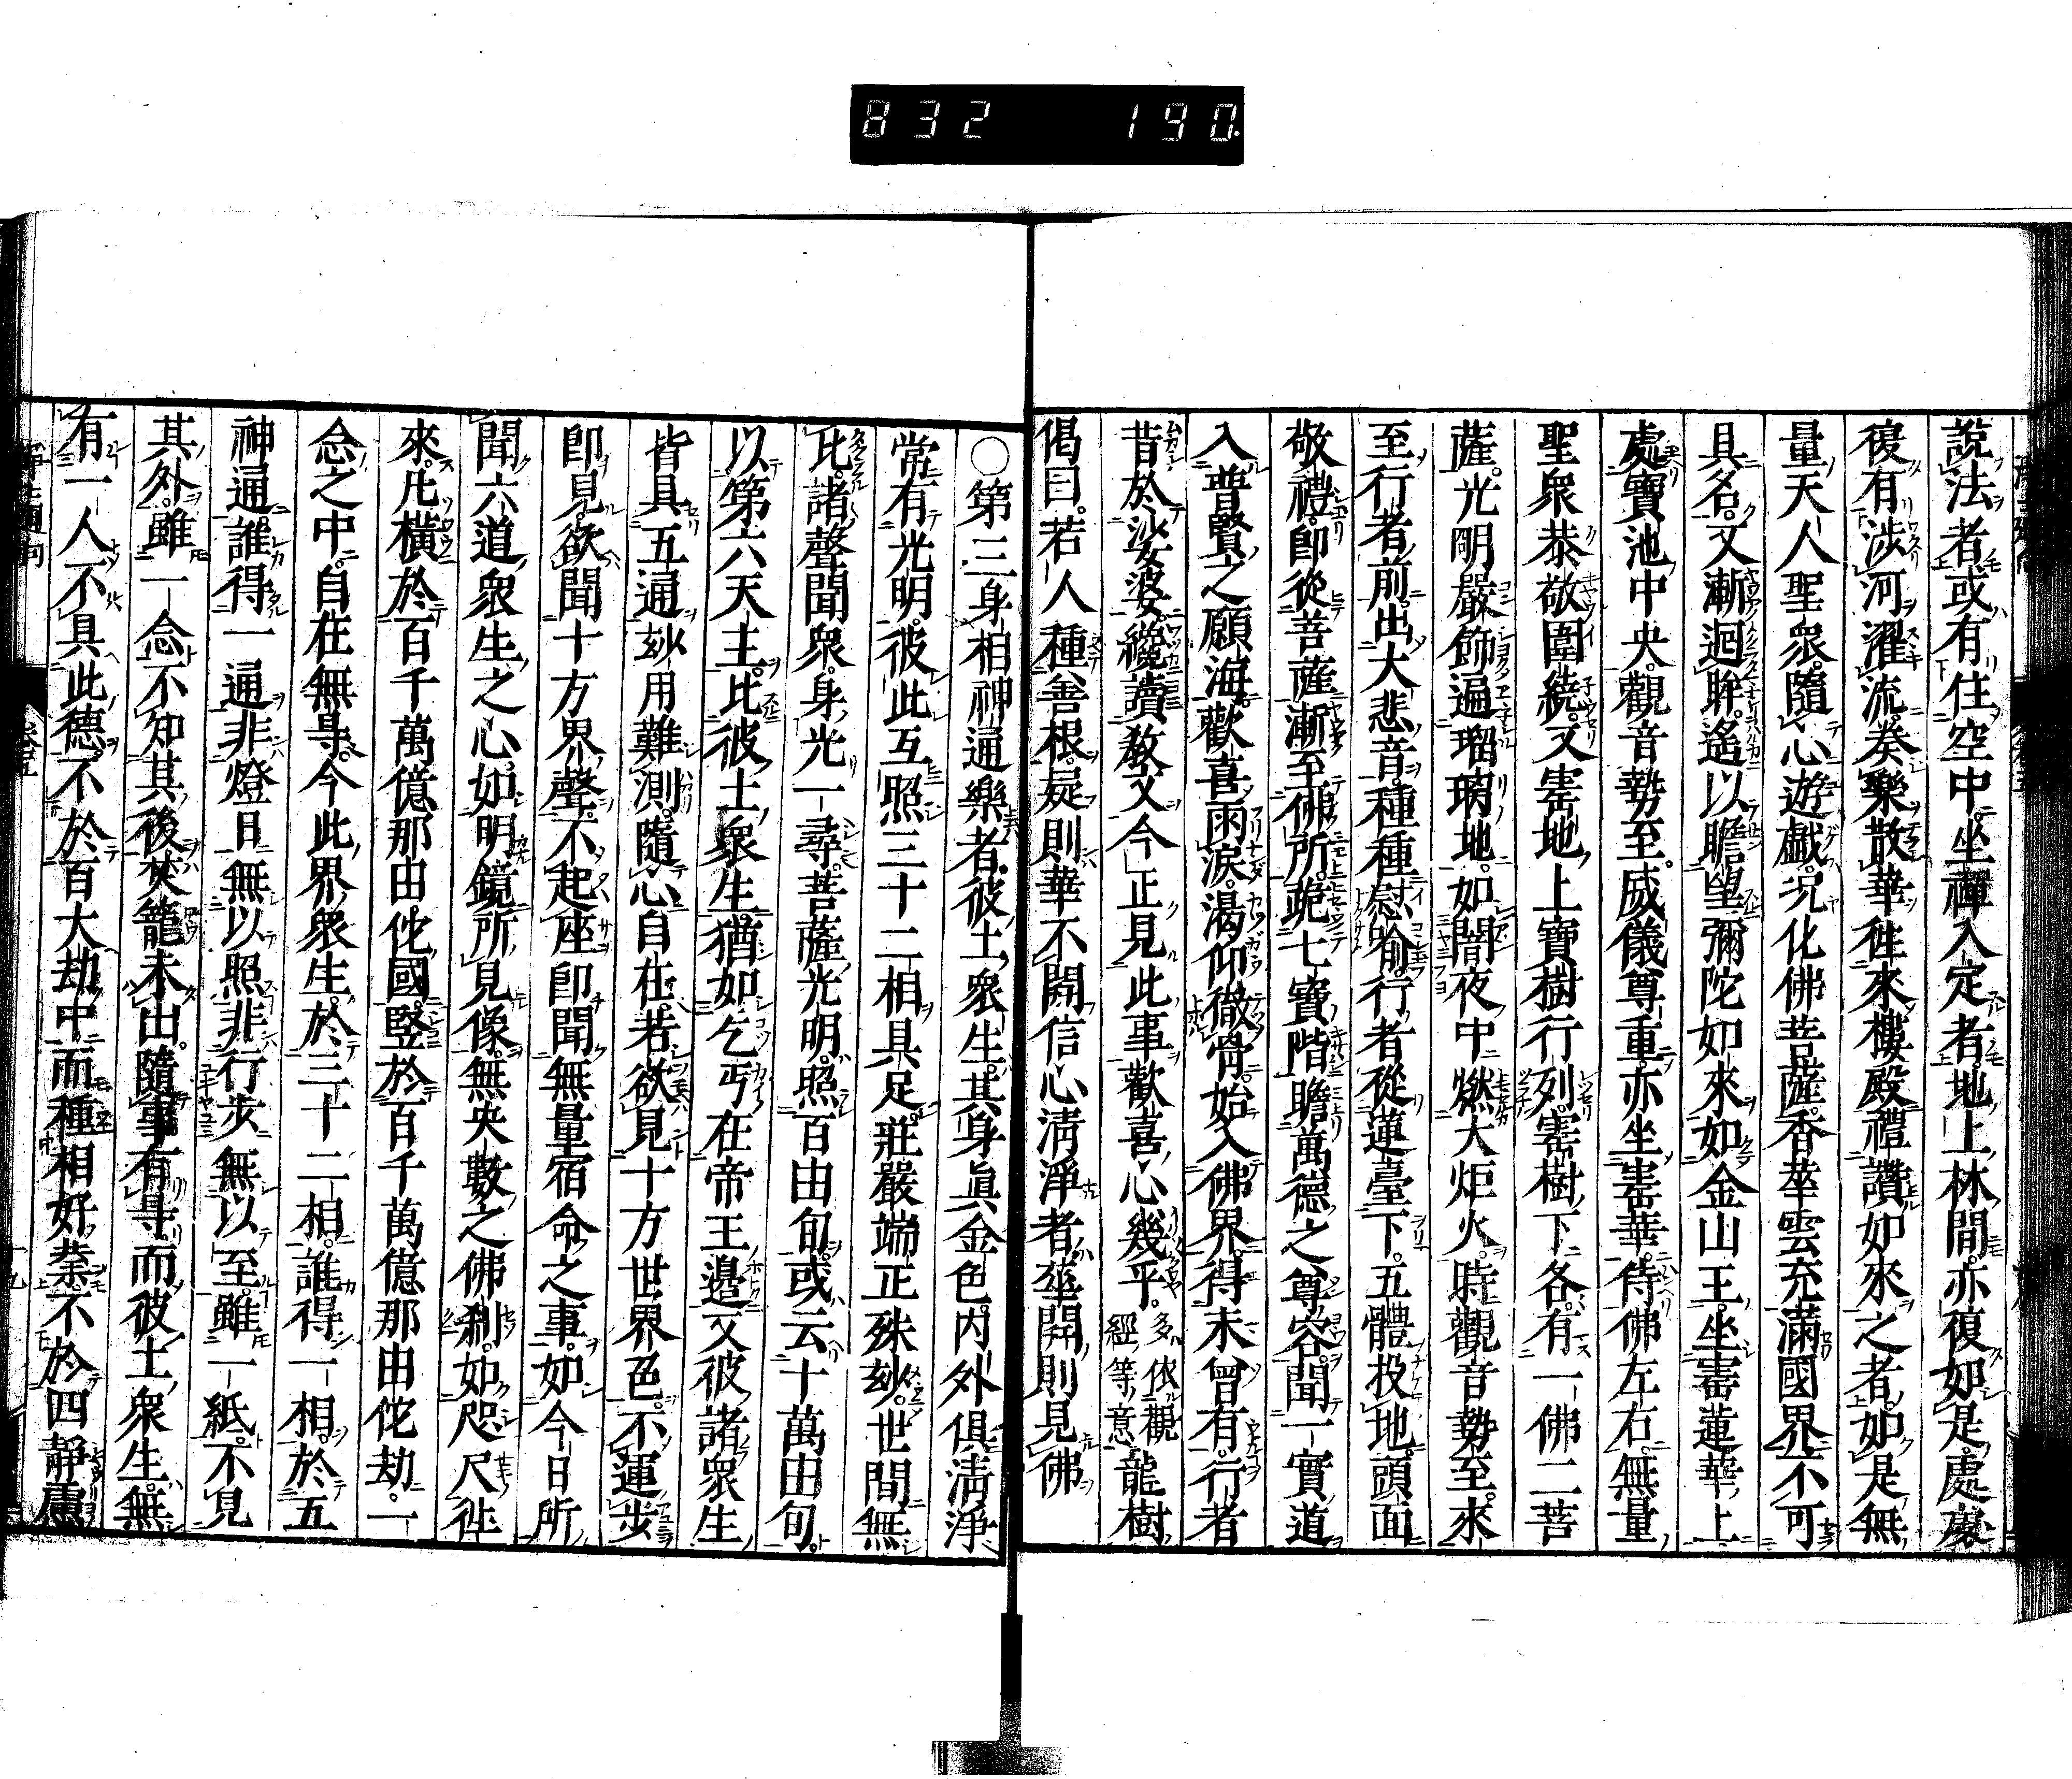 832 190
說法者。或有住空中。坐禪入定者。地上林間。亦復如是。處處
復有涉河濯流。奏樂散華。往來樓殿。禮讚如來之者。如是無
量天人聖衆。隨心遊戲。況化佛菩薩。香華雲充滿國界。不可
具名。又漸迴眸。遙以瞻望。彌陀如來。如金山王。坐寳蓮華上。
處寶池中央。觀音勢至。威儀尊重。亦坐寳華。侍佛左右。無量
聖衆。恭敬圍繞。又寳地上寶樹行列。寳樹下各有一佛二菩
薩。光明嚴飾。遍瑠璃地。如闇夜中燃大炬火。時觀音勢至。來
至行者前。出大悲音。種種慰喻。行者從蓮臺下。五體投地。頭面
敬禮。即從菩薩。漸至佛所。跪七寶階。瞻萬德之尊容。聞一實道
入普賢之願海。歡喜雨淚。渴仰徹骨。始入佛界。得未曾有。行者
昔於娑婆。纔讀敎文。今正見此事。歡喜心幾乎。多依觀經等意 龍樹
偈曰。若人種善根。疑則華不開。信心淸淨者。華開則見佛
○第三身相神通樂者。彼土衆生。其身眞金色。内外俱淸淨
常有光明。彼此互照。三十二相具足。莊嚴端正殊妙。世間無
比。諸聲聞衆。身光一尋。菩薩光明。照百由旬。或云十萬由旬。
以第六天主。比彼土衆生。猶如乞丐在帝王邊。又彼諸衆生
皆具五通。妙用難測。隨心自在。若欲見十方世界色。不運步
即見。欲聞十方界聲。不起座即聞。無量宿命之事。如今日所
聞。六道衆生之心。如明鏡所見像。無央數之佛刹。如咫尺往
來。凡橫於百千萬億那由佗國。竪於百千萬億那由佗劫。一
念之中。自在無㝵。今此界衆生。於三十二相。誰得一相。於五
神通。誰得一通。非燈日無以照。非行步無以至。雖一紙。不見
其外。雖一念不知其後。樊籠未出。隨事有㝵。而彼土衆生。無
有一人。不具此德。不於百大劫中。而種相好業。不於四靜慮